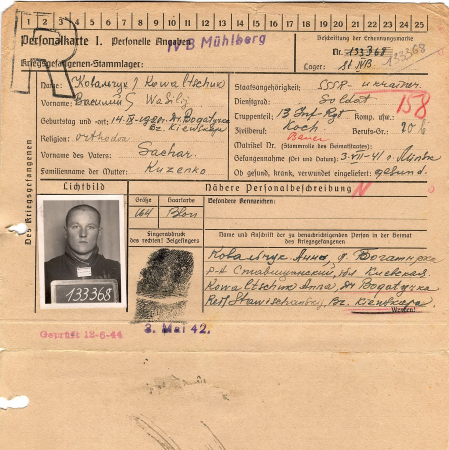 1 2 3 4 5 6 7 8 9 10 11 12 13 14 15 16 17 18 19 20 21 22 23 24 25
Personalkarte I. Personelle Angaben
IV B Mühlberg
Kriegsgefangenen-Stammlager:
Beschriftung der Erkennungsmarke
Nr. 133368
133368
Lager: St IVB
Des Kriegsgefangenen
Name: Ковальчук / Kowaltschuk
Vorname: Василий Wasilij
Geburtstag und -ort: Bogatyrka
Bz. Kiewskaja
Religion: orthodox
Vorname des Vaters: Sachar
Familienname der Mutter: Kuzenko
Staatsangehörigkeit: SSSR - Ukrainer
Dienstgrad: Soldat
Truppenteil: 13 Inf. Rgt Komp. usw.:
158
Zivilberuf: Koch Berufs-Gr.: 20/6
Bauer
Matrikel Nr. (Stammrolle des Heimatstaates):
Gefangennahme (Ort und Datum): 3-VII-41 Minsk
Ob gesund, krank, verwundet eingeliefert: gesund.
Lichtbild
Nähere Personalbeschreibung
N
Größe Haarfarbe Besondere Kennzeichen:
164 Blon
Fingerabdruck
des rechten! Zeigefingers
Name und Anschrift der zu benachrichtigenden Person in der Heimat
des Kriegsgefangenen
Ковальчук Анна, д. Богатырка
р-н Ставищанский, обл Киевская.
Kowaltschuk Anna Dr Bogatyrka
Bz. Kiewskaja
133368
Geprüft 12-6-44
3. Mai 42.